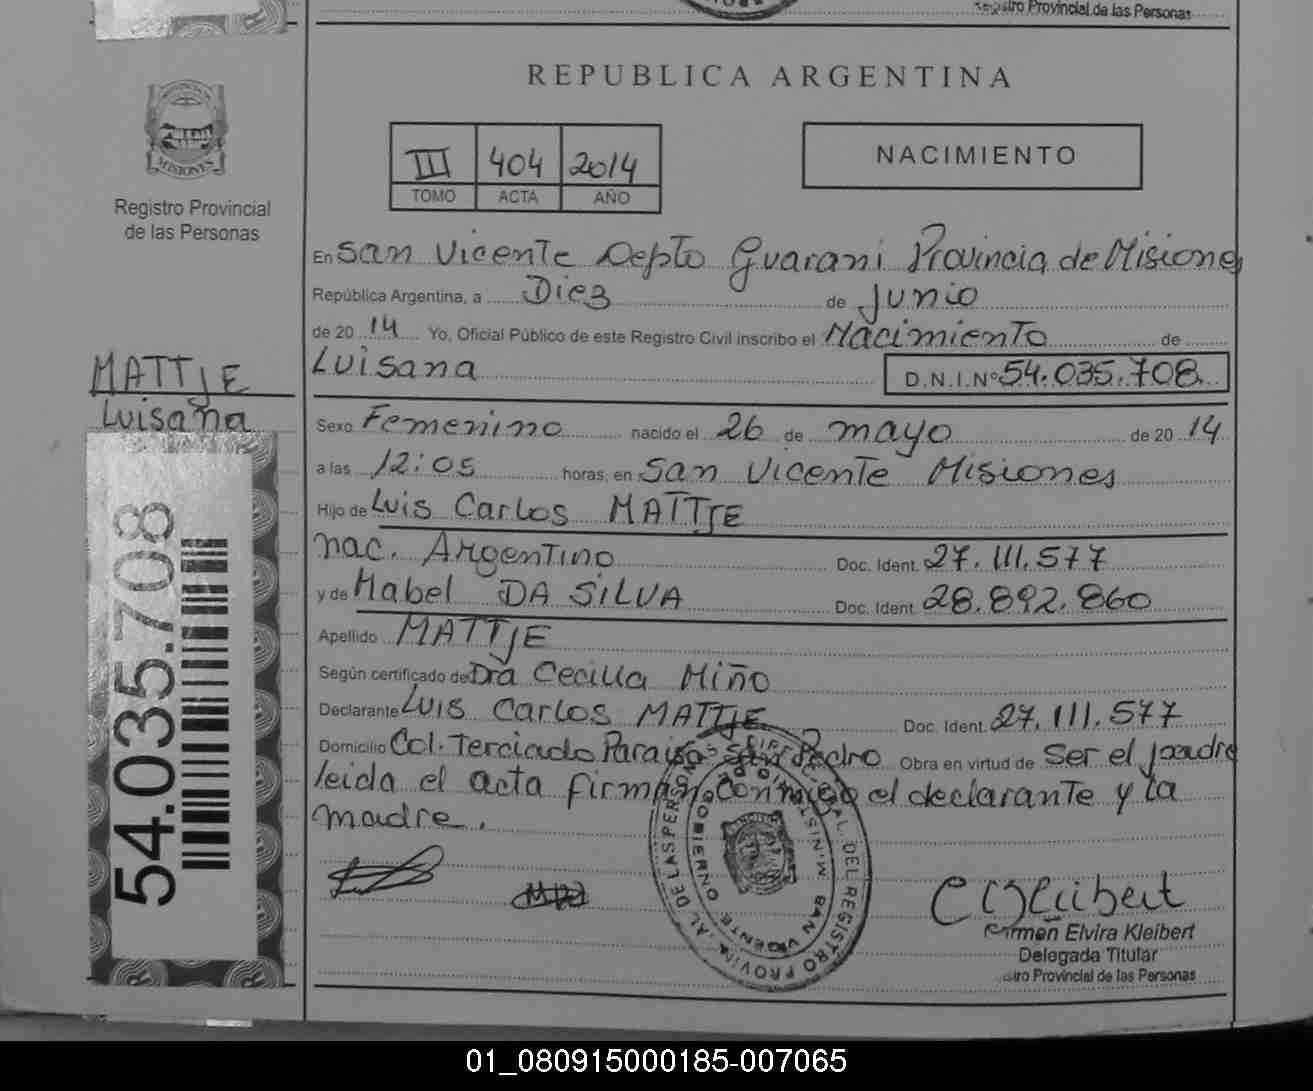 Registro Provincial de las Personas
REPUBLICA ARGENTINA
MISIONES
Registro Provincial
de las Personas
III 404 2014
TOMO ACTA AÑO
NACIMIENTO
En San Vicente Depto Guarani Provincia de Misiones
República Argentina, a Diez de Junio
de 2014 Yo, Oficial Público de este Registro Civil inscribo el Nacimiento de
Luisana D.N.I.Nº 54.035.708
MATTJE
Luisana
Sexo Femenino nacido el 26 de mayo de 2014
a las 12:05 horas, en San Vicente Misiones
Hijo de Luis Carlos MATTJE
nac. Argentino Doc. Ident. 27.111.577
y de Mabel DA SILVA Doc. Ident. 28.892.860
Apellido MATTJE
Según certificado de Dra Cecilia Miño
Declarante Luis Carlos MATTJE Doc. Ident. 27.111.577
Domicilio Col. Terciado Paraiso San Pedro Obra en virtud de Ser el padre
leida el acta firman conmigo el declarante y la
madre.
54.035.708
Kleibert
Carmen Elvira Kleibert
Delegada Titular
Registro Provincial de las Personas
01_080915000185-007065